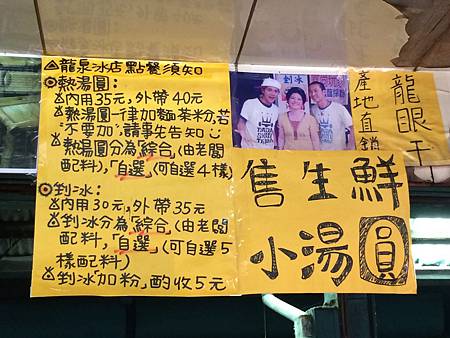 龍泉冰店點餐須知
熱湯圓:
內用35元,外帶40元
熱湯圓一律加麵茶粉,若
"不要加",請事先告知
熱湯圓分為「綜合」(由老闆
配料),「自選」(可自選4樣)
剉冰:
內用30元,外帶35元
剉冰分為「綜合」(由老闆
配料),「自選」(可自選5
樣配料)
剉冰「加粉」酌收5元
剉冰
龍眼干
產地直銷
售生鮮
小湯圓